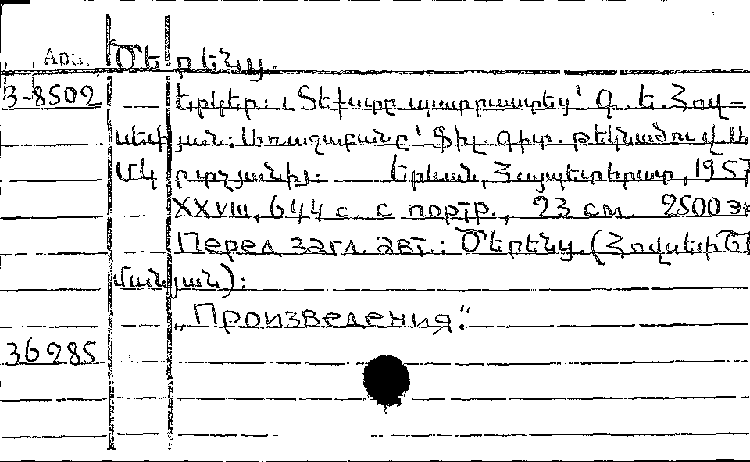 Арм. Ծերենց.
3-8502 Երկեր: / Տեքստը պատրաստեց՝ Գ. Ե. Հով-
սեփյան: Առաջաբանը՝ ֆիլ. գիտ. թեկնածու
Մկրտչյանի: Երևան, Հայպետհրատ, 1957
XXVIII, 644 с. с портр., 23 см. 2500 эк
Перед загл. авт.: Ծերենց. (Հովսեփ Շի
մանյան):
„Произведения".
36285